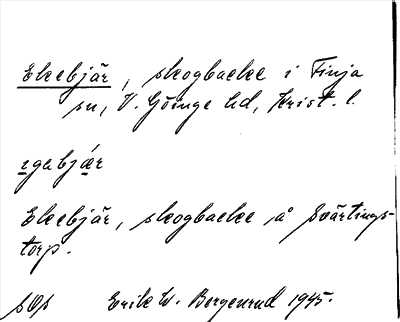 Ekebjär, skogbacke i Finja
sn, V. Göinge hd, Krist. l.
egabjär
Ekebjär, skogbacke å Svärtings-
torp.
sOs Erik W. Bergenrud 1945.